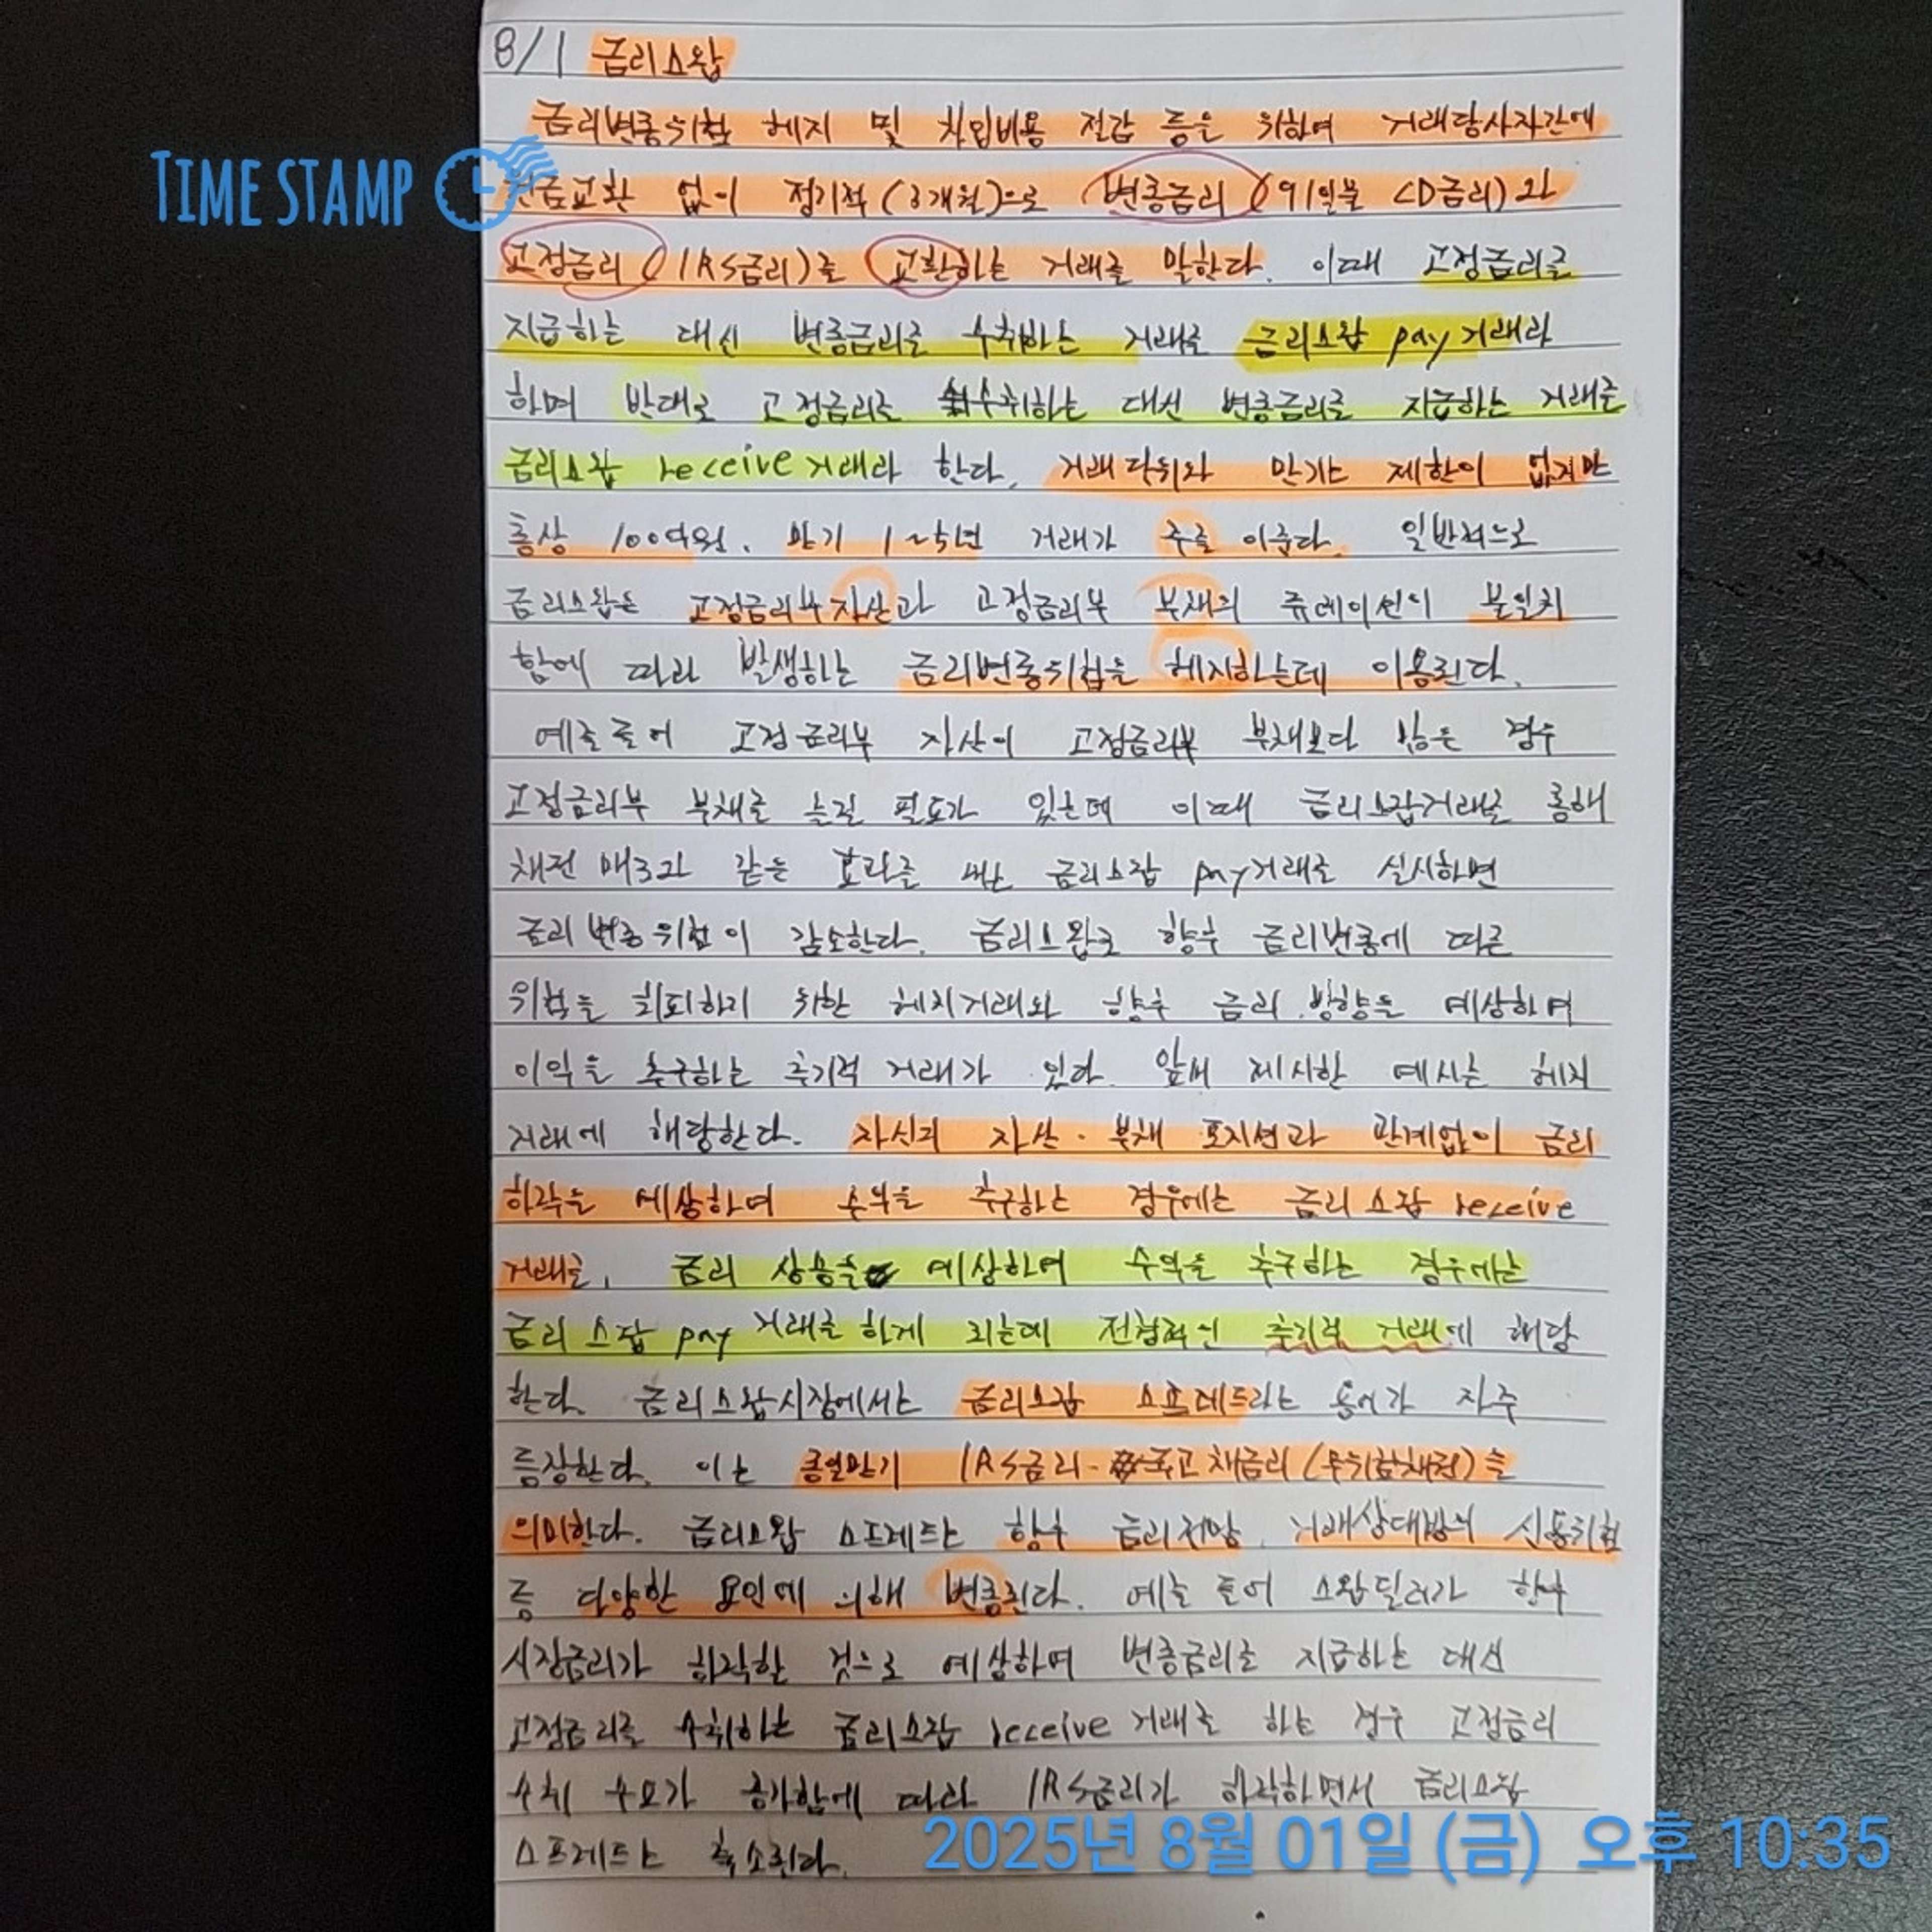 8/1 금리스왑
금리변동위험 헤지 및 차입비용 절감 등을 위하여 거래당사자간에
TIME STAMP
원금교환 없이 정기적(3개월)으로 변동금리(91일물 CD금리)와
고정금리(IRS금리)를 교환하는 거래를 말한다. 이때 고정금리를
지급하는 대신 변동금리를 수취하는 거래를 금리스왑 pay거래라
하며 반대로 고정금리를 수취하는 대신 변동금리를 지급하는 거래를
금리스왑 receive거래라 한다. 거래단위와 만기는 제한이 없지만
통상 100억원, 만기 1~5년 거래가 주를 이룬다. 일반적으로
금리스왑은 고정금리부자산과 고정금리부 부채의 듀레이션이 불일치
함에 따라 발생하는 금리변동위험을 헤지하는데 이용된다.
예를 들어 고정금리부 자산이 고정금리부 부채보다 많은 경우
고정금리부 부채를 늘릴 필요가 있는데 이때 금리스왑거래를 통해
채권 매도와 같은 효과를 내는 금리스왑 pay거래를 실시하면
금리변동위험이 감소한다. 금리스왑도 향후 금리변동에 따른
위험을 회피하기 위한 헤지거래와 향후 금리 방향을 예상하여
이익을 추구하는 투기적 거래가 있다. 앞서 제시한 예시는 헤지
거래에 해당한다. 자신의 자산·부채 포지션과 관계없이 금리
하락을 예상하여 수익을 추구하는 경우에는 금리스왑 receive
거래를, 금리 상승을 예상하여 수익을 추구하는 경우에는
금리스왑 pay 거래를 하게 되는데 전형적인 투기적 거래에 해당
한다. 금리스왑시장에서는 금리스왑 스프레드라는 용어가 자주
등장한다. 이는 동일만기 IRS금리-국고채금리(무위험채권)을
의미한다. 금리스왑 스프레드는 향후 금리전망, 거래상대방의 신용위험
등 다양한 요인에 의해 변동된다. 예를 들어 스왑딜러가 향후
시장금리가 하락할 것으로 예상하여 변동금리를 지급하는 대신
고정금리를 수취하는 금리스왑 receive 거래를 하는 경우 고정금리
수취 수요가 증가함에 따라 IRS금리가 하락하면서 금리스왑
스프레드는 축소된다.
2025년 8월 01일 (금) 오후 10:35